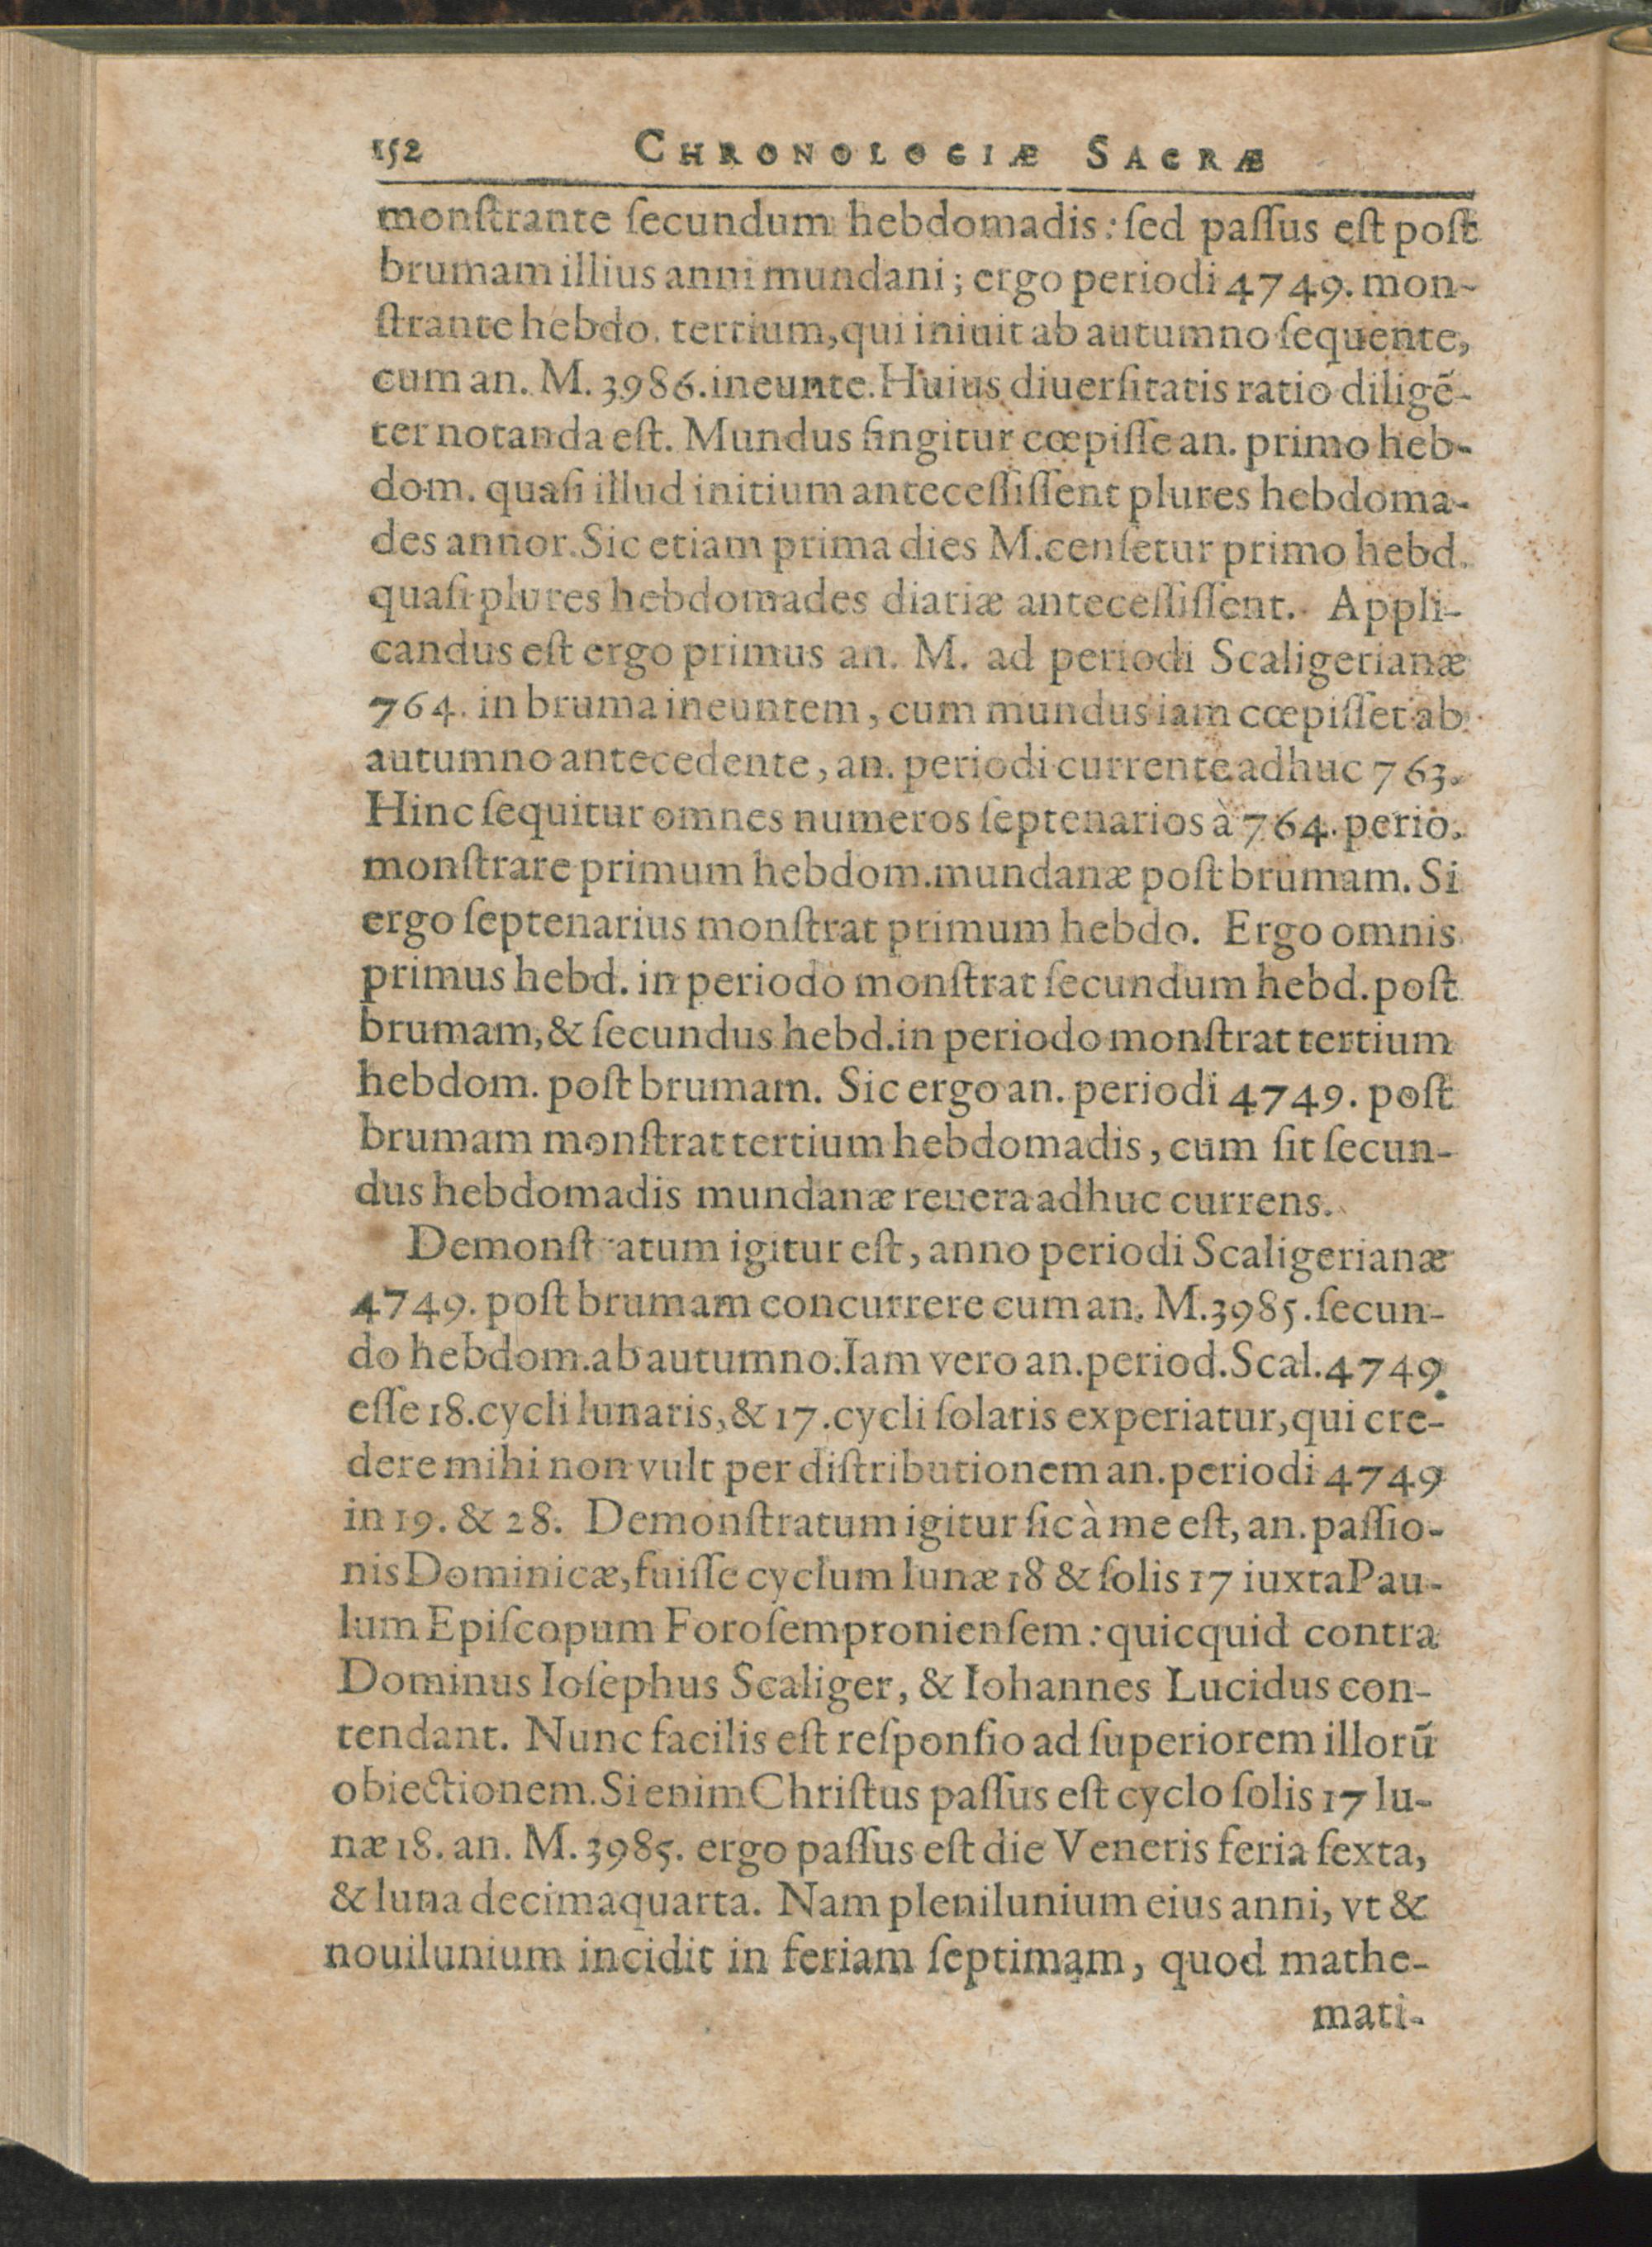 152 CHRONOLOGIÆ SACRÆ
monſtrante ſecundum hebdomadis: ſed paſſus eſt poſt
brumam illius anni mundani; ergo periodi 4749. mon-
ſtrante hebdo. tertium, qui iniuit ab autumno ſequente,
cum an. M. 3986. ineunte. Huius diuerſitatis ratio diligē-
ter notanda eſt. Mundus fingitur cœpiſſe an. primo heb-
dom. quaſi illud initium anteceſſiſſent plures hebdoma-
des annor. Sic etiam prima dies M. cenſetur primo hebd.
quaſi plures hebdomades diariæ anteceſſiſſent. Appli-
candus eſt ergo primus an. M. ad periodi Scaligerianæ
764. in bruma ineuntem, cum mundus iam cœpiſſet ab
autumno antecedente, an. periodi currente adhuc 763.
Hinc ſequitur omnes numeros ſeptenarios à 764. perio.
monſtrare primum hebdom. mundanæ poſt brumam. Si
ergo ſeptenarius monſtrat primum hebdo. Ergo omnis
primus hebd. in periodo monſtrat ſecundum hebd. poſt
brumam, & ſecundus hebd. in periodo monſtrat tertium
hebdom. poſt brumam. Sic ergo an. periodi 4749. poſt
brumam monſtrat tertium hebdomadis, cum ſit ſecun-
dus hebdomadis mundanæ reuera adhuc currens.
Demonſtratum igitur eſt, anno periodi Scaligerianæ
4749. poſt brumam concurrere cum an. M. 3985. ſecun-
do hebdom. ab autumno. Iam vero an. period. Scal. 4749.
eſſe 18. cycli lunaris, & 17. cycli ſolaris experiatur, qui cre-
dere mihi non vult per diſtributionem an. periodi 4749
in 19. & 28. Demonſtratum igitur ſic à me eſt, an. paſſio-
nis Dominicæ, fuiſſe cyclum lunæ 18 & ſolis 17 iuxta Pau-
lum Epiſcopum Foroſempronienſem: quicquid contra
Dominus Ioſephus Scaliger, & Iohannes Lucidus con-
tendant. Nunc facilis eſt reſponſio ad ſuperiorem illorū
obiectionem. Si enim Chriſtus paſſus eſt cyclo ſolis 17 lu-
næ 18. an. M. 3985. ergo paſſus eſt die Veneris feria ſexta,
& luna decimaquarta. Nam plenilunium eius anni, vt &
nouilunium incidit in feriam ſeptimam, quod mathe-
mati-